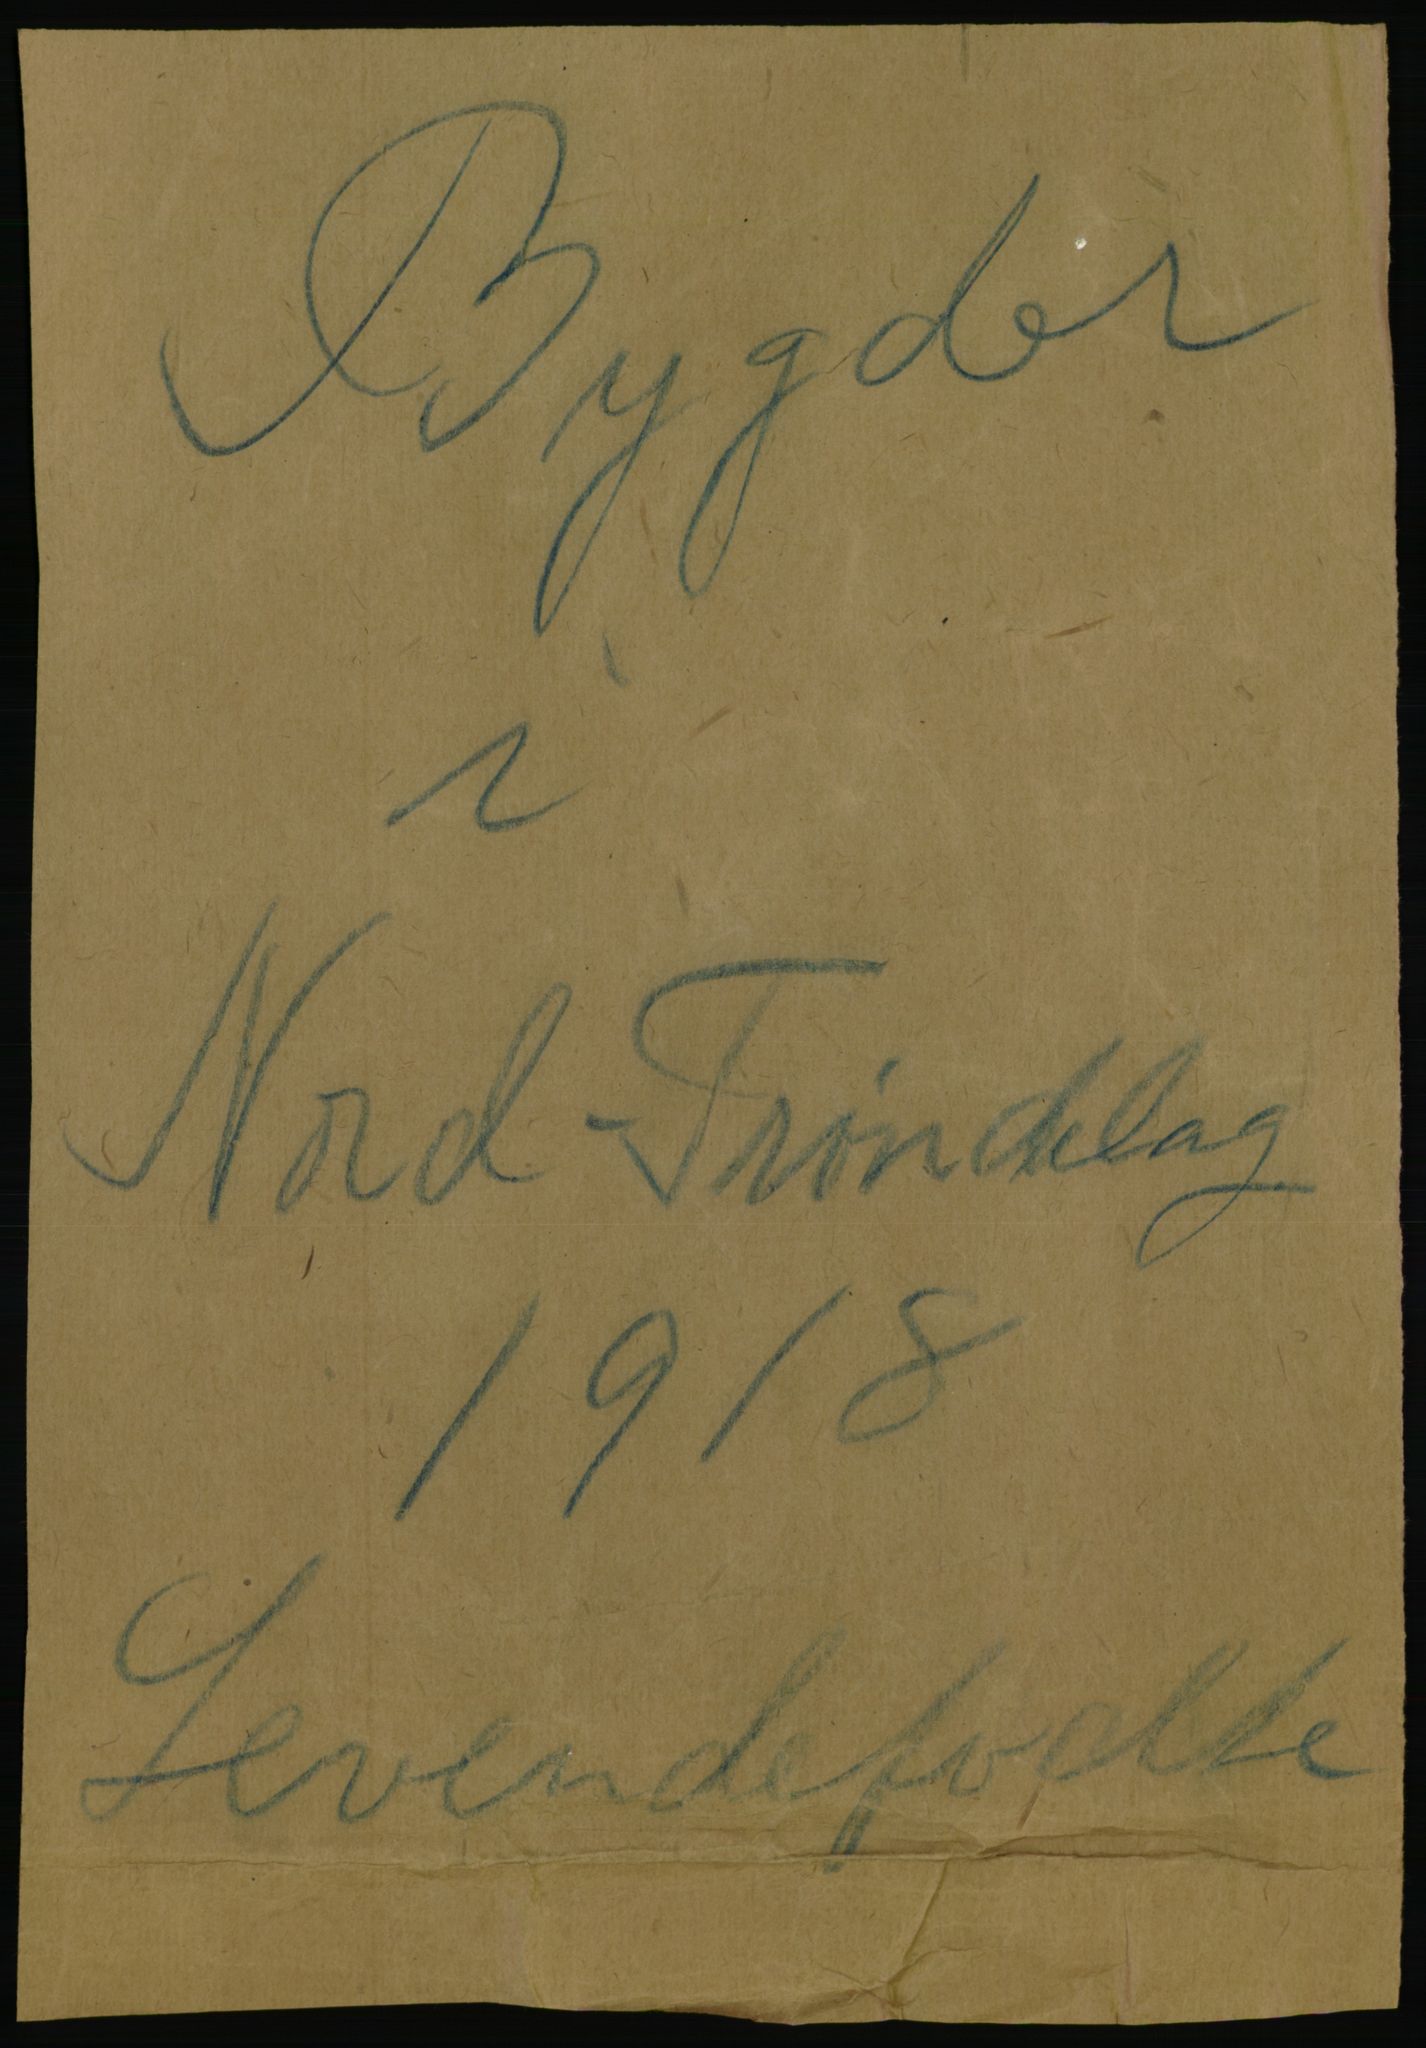 Bygder
i
Nord-Tröndelag
1918
Levendefødte